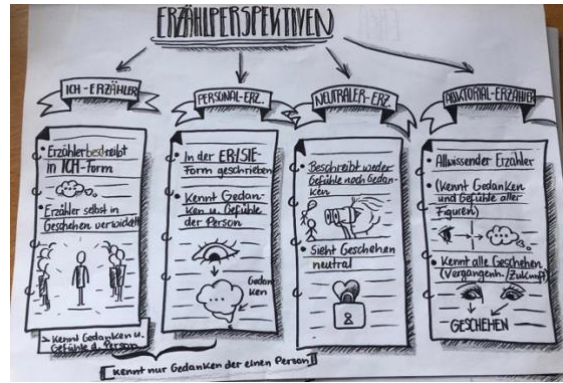 ERZÄHLPERSPEKTIVEN
ICH-ERZÄHLER
• Erzähler bedreibt
in ICH-Form
• Erzähler selbst in
Geschehen verwickelt
> Kennt Gedanken u.
Gefühle d. Person
PERSONAL-ERZ.
• In der ER/SIE-
Form geschrieben
• Kennt Gedan-
ken u. Gefühle
der Person
Gedan
ken
kennt nur Gedanken der einen Person
NEUTRALER-ERZ.
• Beschreibt weder
Gefühle noch Gedan-
ken
• Sieht Geschehen
neutral
• Allwissender Erzähler
• (Kennt Gedanken
und Gefühle aller
Figuren)
• Kennt alle Geschehen
(Vergangenh./Zukunft)
GESCHEHEN